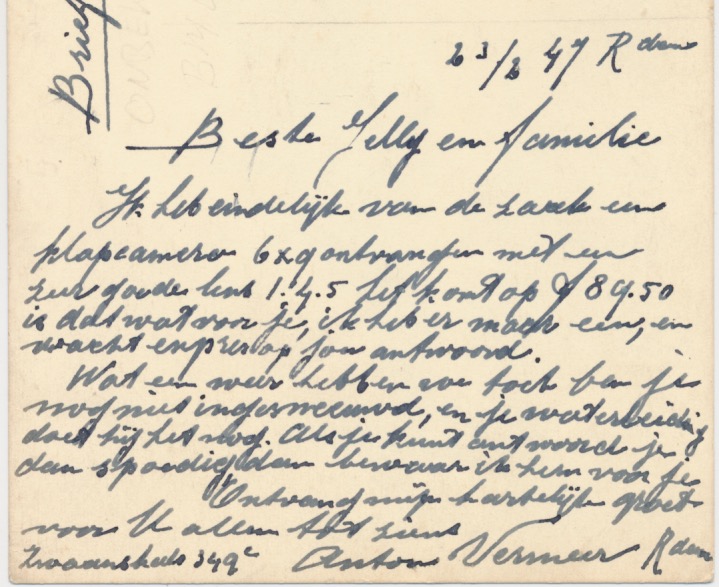 Brief
23/2 47 Rdam
Beste Jelly en familie
Ik heb eindelijk van de zaak een
klapcamera 6x9 ontvangen met een
zeer goede lens 1.4.5 het komt op f 89.50
is dat wat voor je, ik heb er maar een, en
wacht expres op jou antwoord.
Wat een weer hebben we toch ben je
nog niet ingesneeuwd, en je waterleiding
doet hij het nog. Als je kunt antwoord je
dan spoedig dan bewaar ik hem voor je
Ontvang mijn hartelijk groet
voor U allen tot ziens
Zwaanshals 349c Anton Vermeer Rdam